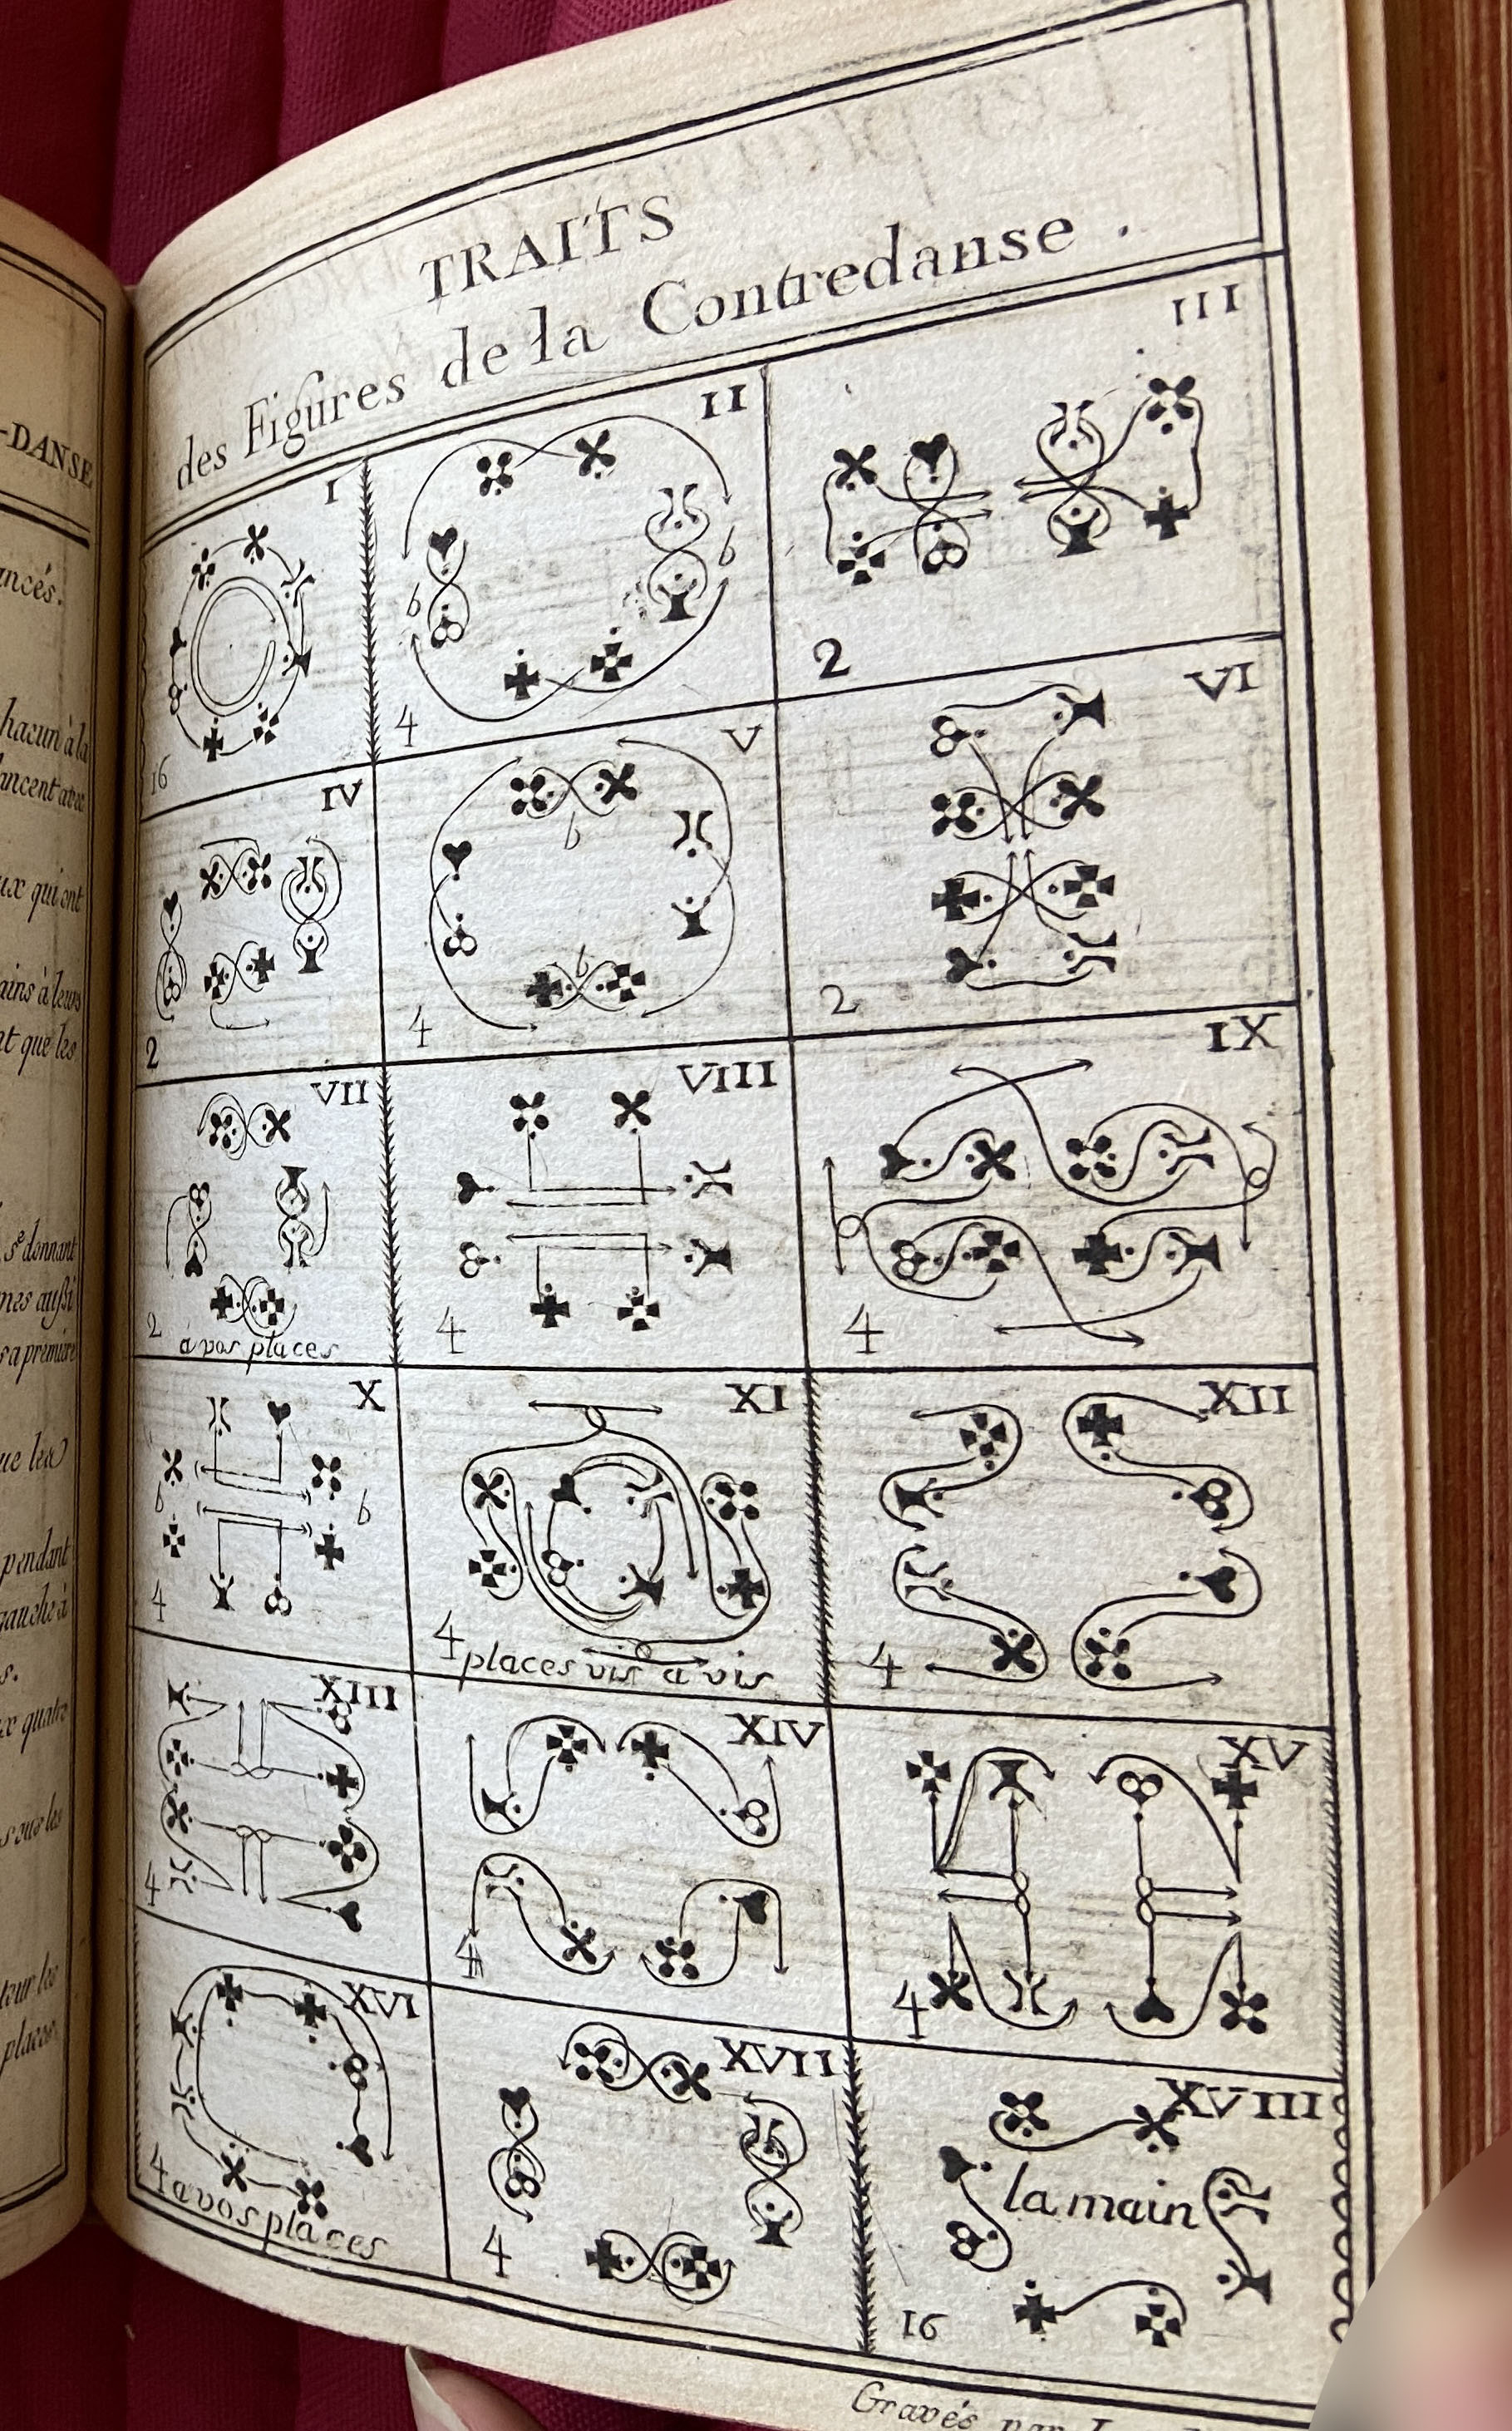 -DANSE
ancés.
chacun à la
ux qui ont
ains à leurs
nt que les
se donnant
nes aussi
sa premiere
que les
pendant
gauche à
s.
ux quatre
s sur les
tour les
places
TRAITS
des Figures de la Contredanse.
I
16
II
b
b
4
III
2
IV
2
V
b
b
4
VI
2
VII
2
à vos places
VIII
4
IX
4
X
b
b
4
XI
4
places vis à vis
XII
4
XIII
4
XIV
4
XV
4
XVI
4
a vos places
XVII
4
XVIII
la main
16
Gravés par